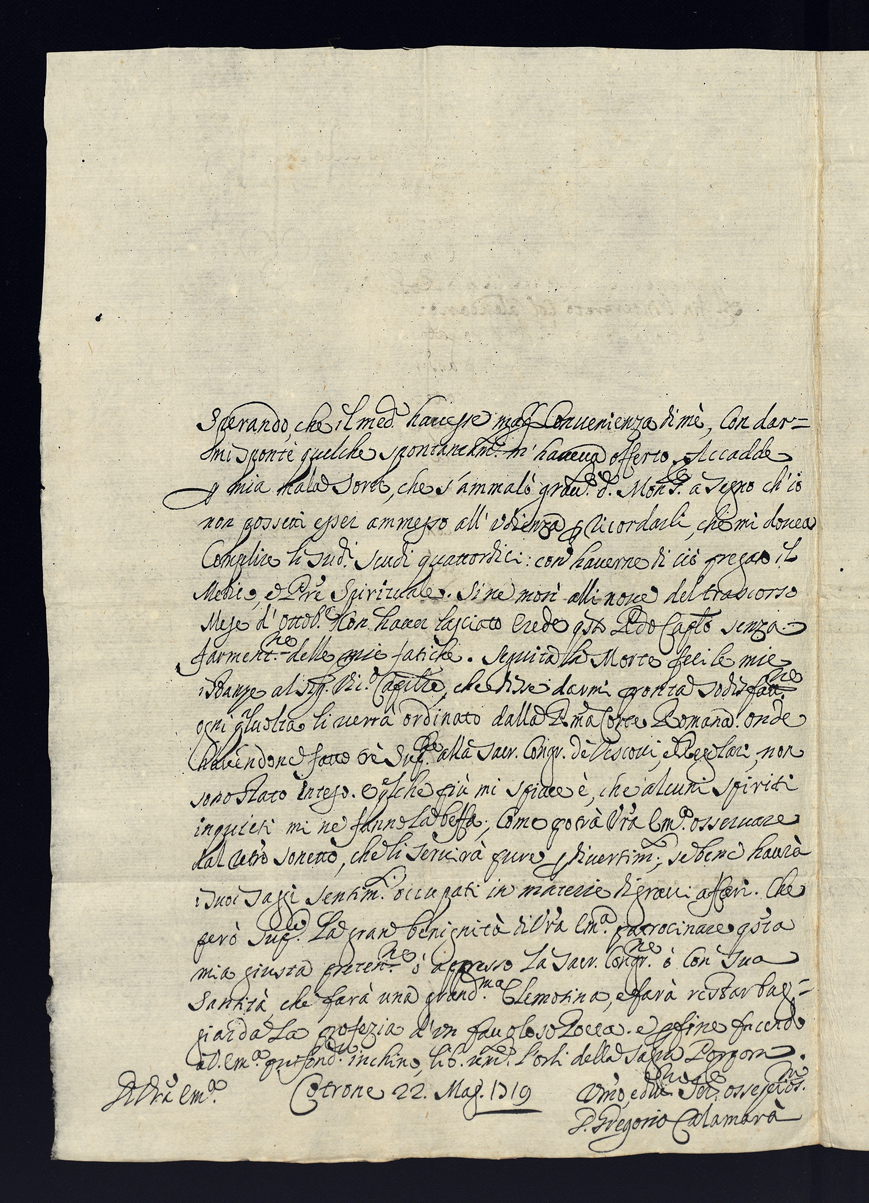 Sperando, che il med.º havesse magg. Convenienza di mè, Con dar=
mi sponte quelche spontaneam.te m'haveva offerto. Accadde
p mia mala Sorte, che s'ammalò grav.e d.º Mons.r à Segno ch'io
non possetti esser ammesso all'Udienza p ricordarli, che mi dovea
Complire li sud.i scudi quattordici: con haverne di ciò pregato il
Medico, e P̃re Spirituale. Si ne morì alli nove del trascorso
Mese d'Ottob.e Non haver lasciato Erede q̃sto R̃do Cap̃lo senza
delle mie fatiche. Seguita la Morte feci le mie
istanze al Sig. Vic.º Cap̃lre, che disse darmi pronta sodisfatt.ne
ogni q̃lvolta li verrà ordinato dalla R̃ma Corte Romana. onde
havendone fatto trè Sup.che alla Sacr. Congr. de Vescovi, e Regolari, non
sono stato inteso. e q̃lche più mi spiace è, che alcuni spiriti
inquieti mi ne fanno la beffa; Come potrà V̄ra Em.ª osservare
dal retro sonetto, che li servirà pure p divertim.to, se bene haurà
i suoi saggi sentim.ti occupati in materie di gravi affari. Che
però sup.co La gran benignità di V̄ra Em.ª patrocinare q̃sta
mia giusta preten.ne ò appresso La Sacr. Congr.ne ò Con Sua
Santità, che farà una grand.ma Elemosina, e farà restar bug=
giarda La profezia d'un favoloso Poeta. e p fine facendo
à V. Em.ª profond.mo inchino, li b. um.te l'orli della Sagra Porpora.
Di V̄ra Em.ª Cotrone 22. Mag. 1719 Um̃o, e di.mo Ser.re ossequios.mo
D. Gregorio Calamarà